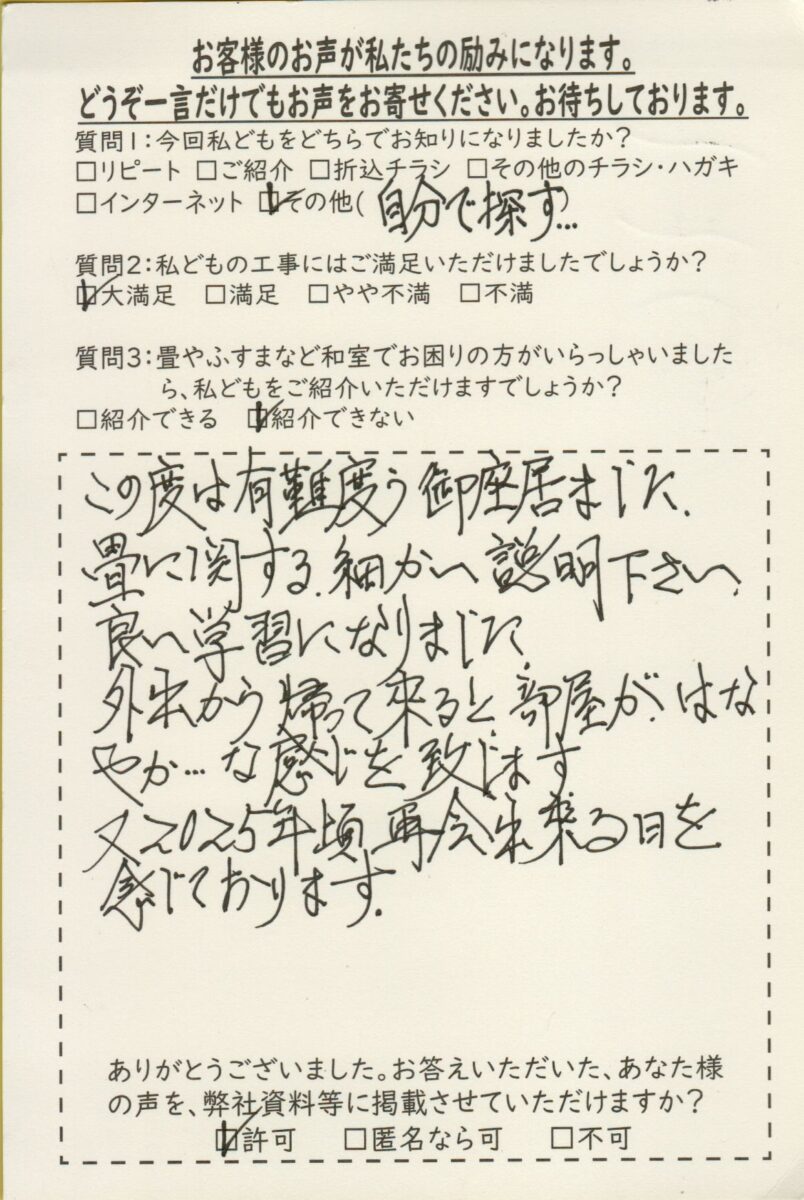 お客様のお声が私たちの励みになります。
どうぞ一言だけでもお声をお寄せください。お待ちしております。
質問1:今回私どもをどちらでお知りになりましたか?
□リピート □ご紹介 □折込チラシ □その他のチラシ・ハガキ
□インターネット ☑その他(自分で探す...)
質問2:私どもの工事にはご満足いただけましたでしょうか?
☑大満足 □満足 □やや不満 □不満
質問3:畳やふすまなど和室でお困りの方がいらっしゃいました
ら、私どもをご紹介いただけますでしょうか?
□紹介できる ☑紹介できない
この度は有難度う御座居ました.
畳に関する.細かい説明下さい、
良い学習になりました.
外出から帰って来ると、部屋が、はな
やか...な感じを致します
又2025年頃再会出来る日を
感じております.
ありがとうございました。お答えいただいた、あなた様
の声を、弊社資料等に掲載させていただけますか?
☑許可 □匿名なら可 □不可